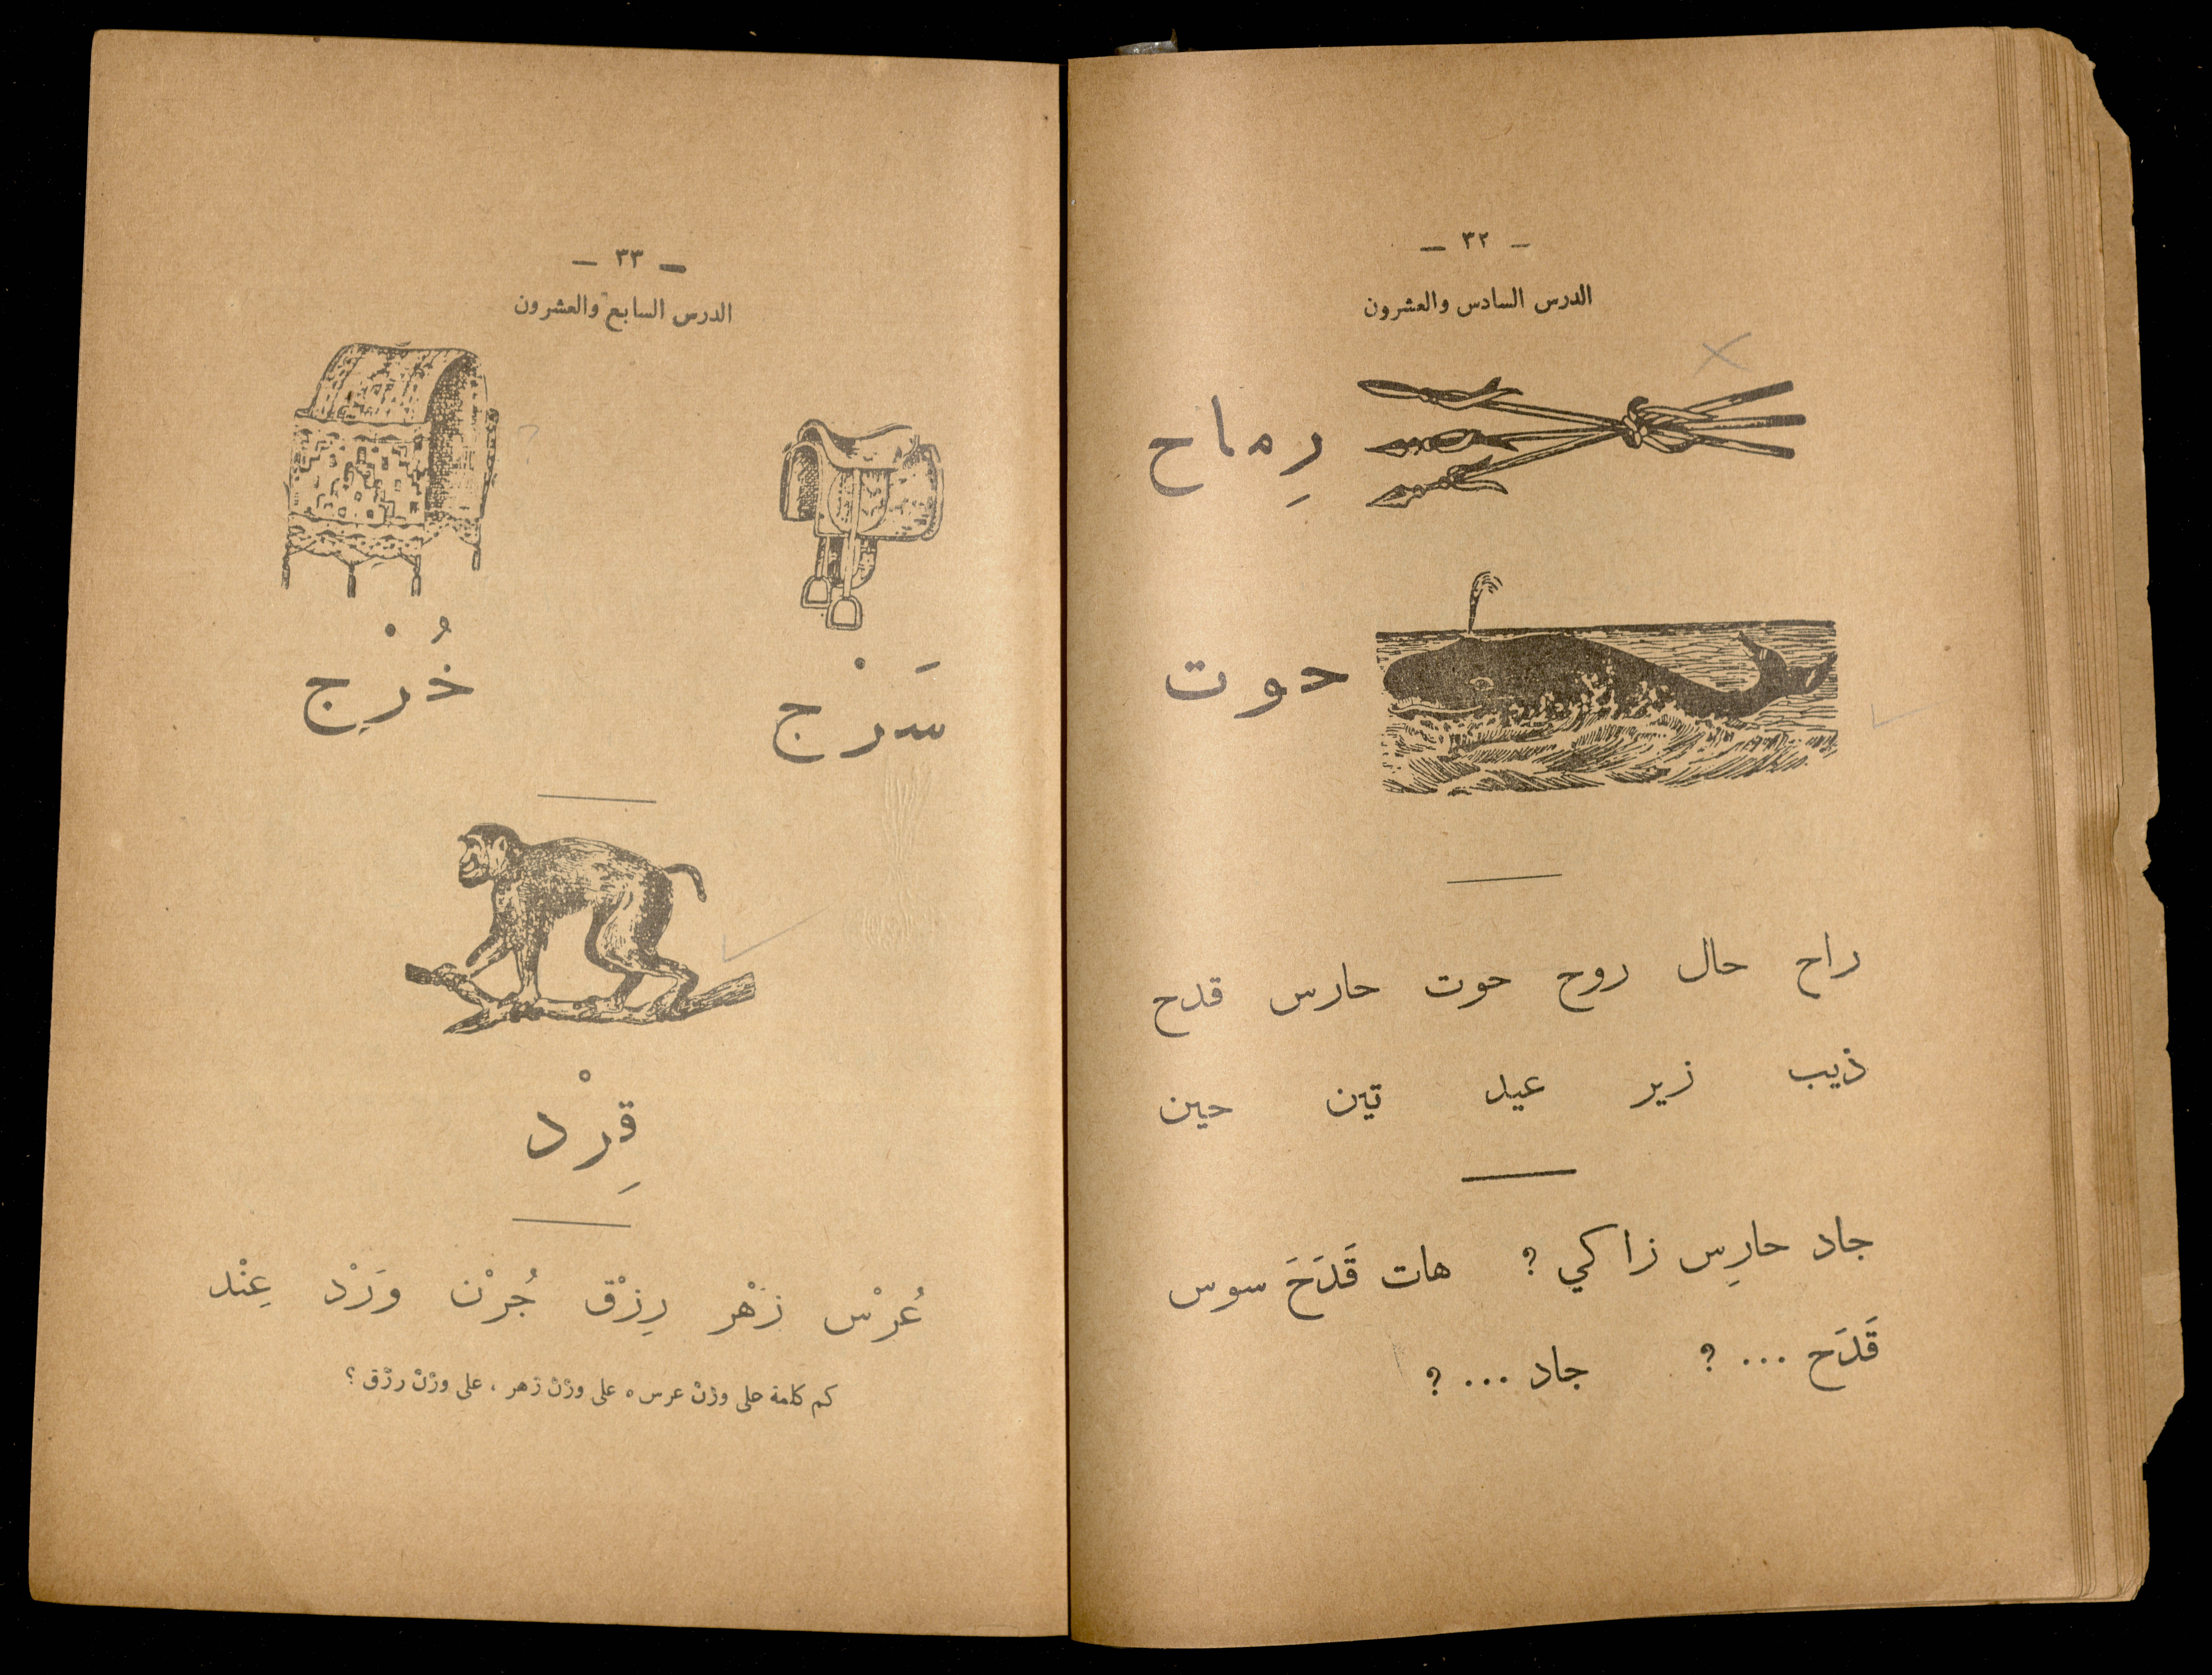 — ٣٢ —
الدرس السادس والعشرون
رِماح
حوت
راح حال روح حوت حارس قدح
ذيب زير عيد تين حين
جاد حارِس زاكي ؟ هات قَدَحَ سوس
قَدَح ... ؟ جاد ... ؟
— ٣٣ —
الدرس السابع والعشرون
سَرْج خُرْج
قِرْد
عُرْس زَهْر رِزْق جُرْن وَرْد عِنْد
كم كلمة على وزْن عرس ، على وزْن زهر ، على وزْن رزْق ؟